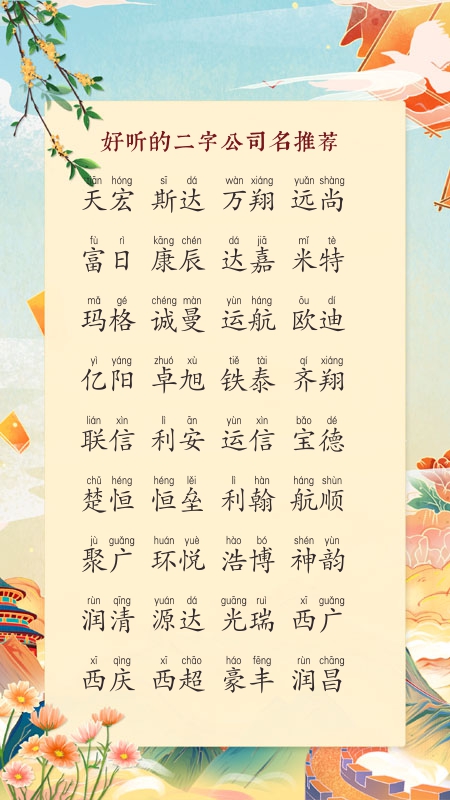 好听的二字公司名推荐
tiān hóng sī dá wàn xiáng yuǎn shàng
天宏 斯达 万翔 远尚
fù rì kāng chén dá jiā mǐ tè
富日 康辰 达嘉 米特
mǎ gé chéng màn yùn háng ōu dí
玛格 诚曼 运航 欧迪
yì yáng zhuó xù tiě tài qí xiáng
亿阳 卓旭 铁泰 齐翔
lián xìn lì ān yùn xìn bǎo dé
联信 利安 运信 宝德
chǔ héng héng lěi lì hàn háng shùn
楚恒 恒垒 利翰 航顺
jù guǎng huán yuè hào bó shén yùn
聚广 环悦 浩博 神韵
rùn qīng yuán dá guāng ruì xī guǎng
润清 源达 光瑞 西广
xī qìng xī chāo háo fēng rùn chāng
西庆 西超 豪丰 润昌